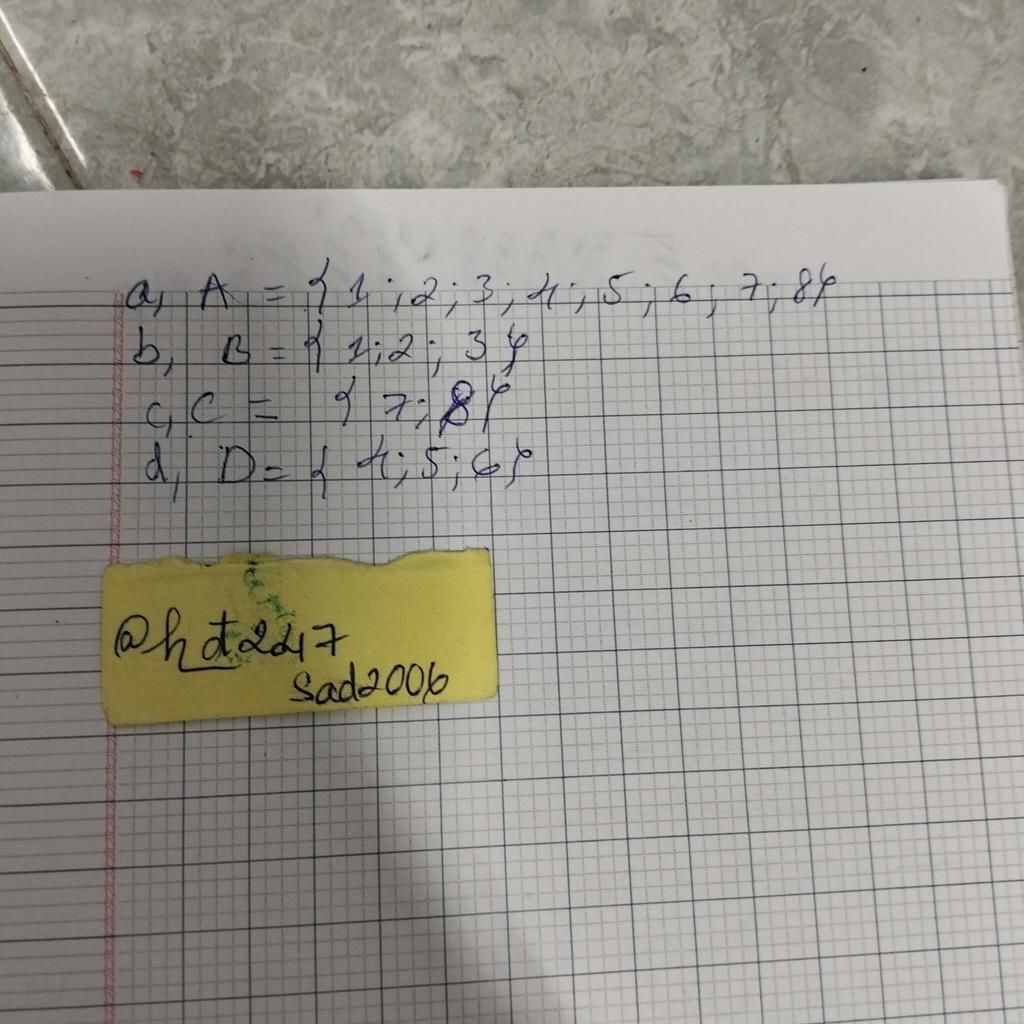 a, A = { 1 ; 2 ; 3 ; 4 ; 5 ; 6 ; 7 ; 8}
b, B = { 1 ; 2 ; 3 }
c, C = { 7 ; 8}
d, D = { 4 ; 5 ; 6 }
@h_dt2247
sad2006